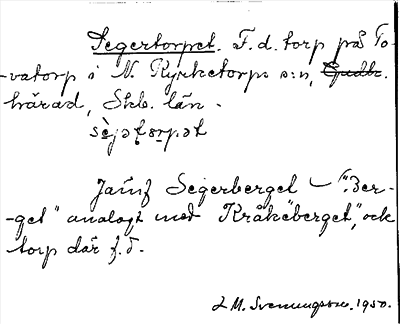 Segertorpet. F.d. torp på To-
-vatorp i N. Kyrketorps s:n,
härad, Skb. län.
sèjətɔrpət
Jämf Segerberget – "Ber-
-get" analogt med "Kråkeberget", ock
torp där f.d.
L M. Svenungsson. 1950.